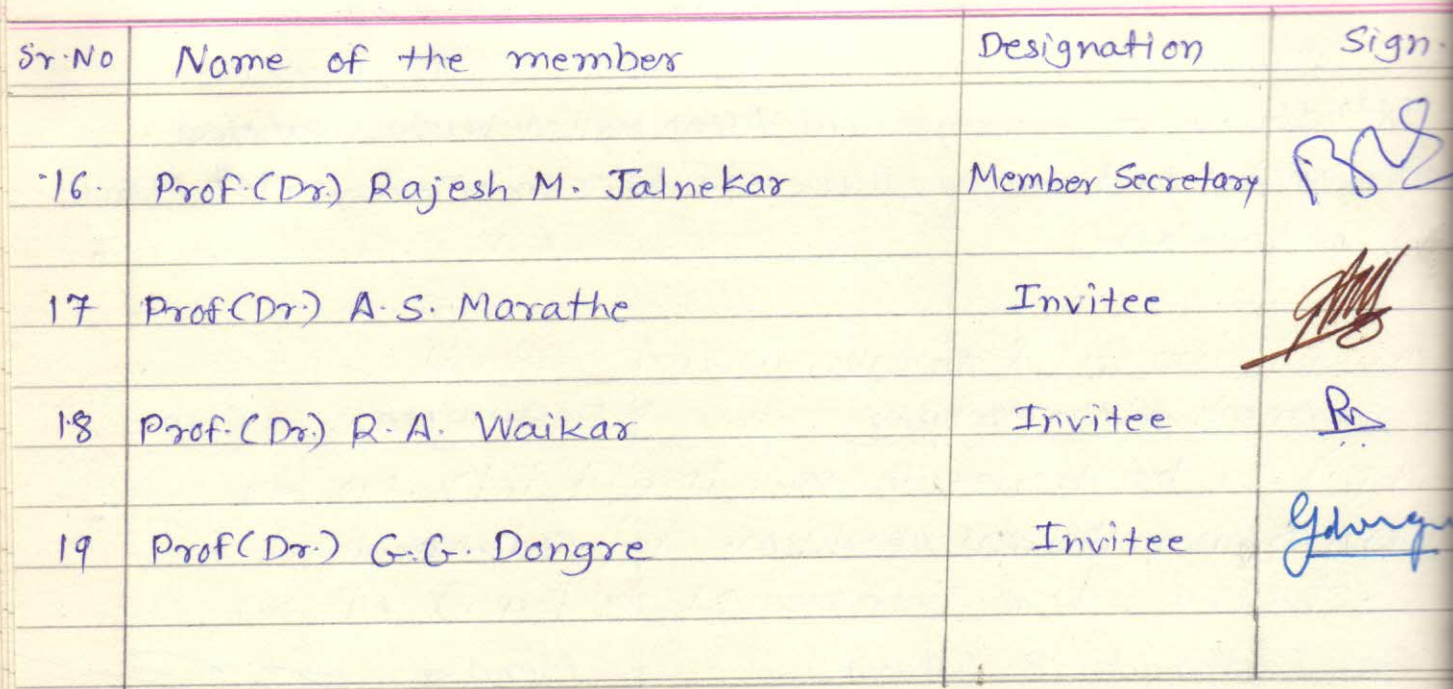 Sr.No Name of the member Designation Sign.
16. Prof.(Dr.) Rajesh M. Jalnekar Member Secretary
17 Prof(Dr.) A.S. Marathe Invitee
18 Prof.(Dr.) R.A. Waikar Invitee
19 Prof(Dr.) G.G. Dongre Invitee